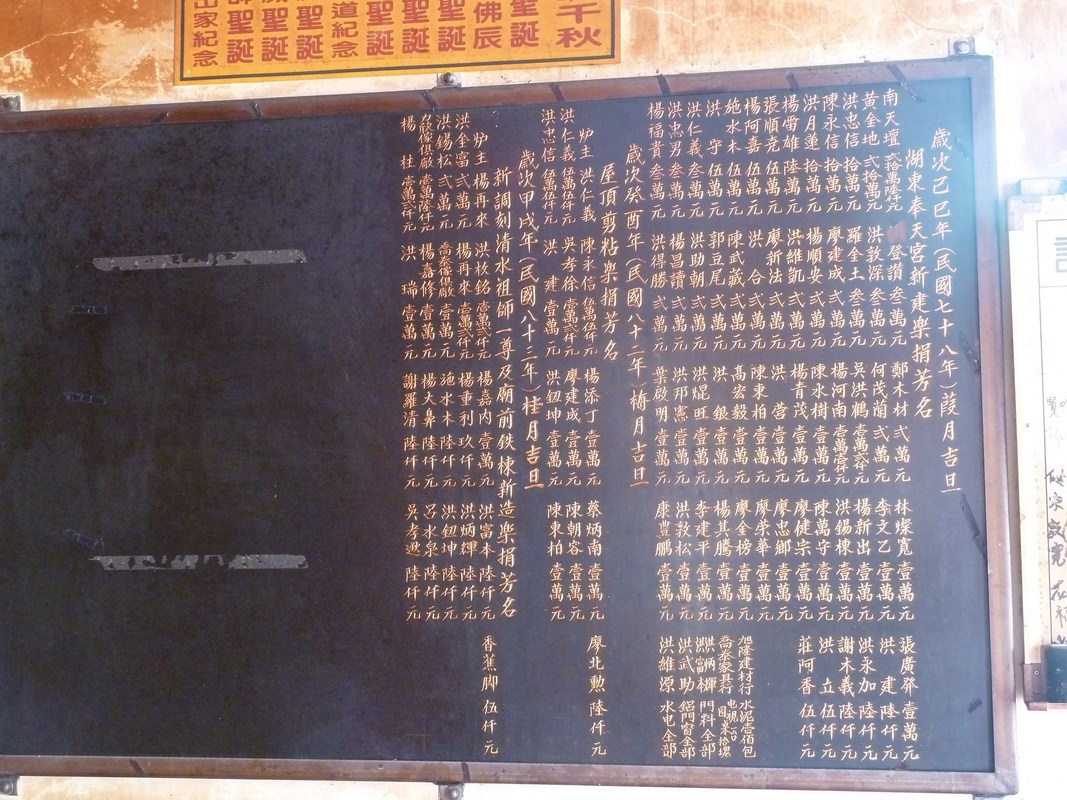 千秋
聖誕
佛辰
聖誕
聖誕
聖誕
道紀念
聖誕
聖誕
聖誕
出家紀念
歲次己巳年（民國七十八年）葭月吉旦
湖東奉天宮新建樂捐芳名
南天壇 弍拾萬陸仟元 登讚 叁萬元 鄭木材 弍萬元 林燦寬 壹萬元 張廣發 壹萬元
黃金地 弍拾萬元 洪敦深 叁萬元 何茂蘭 弍萬元 李文乙 壹萬元 洪建 陸仟元
洪忠信 拾萬元 羅金土 叁萬元 吳洪鶴 壹萬弍仟元 楊新出 壹萬元 洪永加 陸仟元
陳永信 拾萬元 廖建成 弍萬元 楊河南 壹萬壹仟元 洪錫棟 壹萬元 謝木義 陸仟元
洪月蓮 拾萬元 楊順安 弍萬元 陳水樹 壹萬元 陳萬守 壹萬元 洪立 伍仟元
楊雷雄 陸萬元 洪維凱 弍萬元 楊青茂 壹萬元 廖健宗 壹萬元 莊阿香 伍仟元
張順堯 伍萬元 廖新法 弍萬元 洪營 壹萬元 廖忠鄉 壹萬元
楊何嘉 伍萬元 洪合 弍萬元 陳東柏 壹萬元 廖榮華 壹萬元
施水木 伍萬元 陳武葳 弍萬元 高宏毅 壹萬元 廖金榜 壹萬元 旭隆建材行 水泥壹佰包
洪守 伍萬元 郭豆尾 弍萬元 洪銀 壹萬元 楊其騰 壹萬元 喬泰家具行 電視一台
洪仁義 叁萬元 洪助朝 弍萬元 洪焜旺 壹萬元 李建平 壹萬元 洪炳輝 洪富本 門料全部
洪忠男 叁萬元 楊昌讀 弍萬元 洪邦憲 壹萬元 洪敦松 壹萬元 洪武助 鋁門窗全部
楊福貴 叁萬元 洪得勝 弍萬元 葉啟明 壹萬元 康豊鵬 壹萬元 洪維源 水电全部
歲次癸酉年（民國八十二年）梅月吉旦
屋頂剪粘樂捐芳名
炉主 洪仁義 陳永信 伍萬伍仟元 楊添丁 壹萬元 蔡炳南 壹萬元 廖北勲 陸仟元
洪仁義 伍萬伍仟元 吳孝徐 壹萬弍仟元 廖建成 壹萬元 陳朝容 壹萬元
洪忠信 伍萬伍仟元 洪建 壹萬元 洪鈕坤 壹萬元 陳東柏 壹萬元
歲次甲戌年（民國八十三年）桂月吉旦
新調刻清水祖師一尊及廟前鉄棟新造樂捐芳名
炉主 楊再來 洪枚銘 壹萬弍仟元 楊嘉内 壹萬元 洪富本 陸仟元 香蕉脚 伍仟元
洪金富 弍萬元 楊再來 壹萬弍仟元 楊重利 玖仟元 洪炳輝 陸仟元
洪錫松 弍萬元 喬泰傢俱廠 壹萬元 施水本 陸仟元 洪鈕坤 陸仟元
力欣傢俱廠 壹萬陸仟元 楊嘉修 壹萬元 楊大鼻 陸仟元 呂水泉 陸仟元
楊柱 壹萬弍仟元 洪瑞 壹萬元 謝羅清 陸仟元 吳孝 陸仟元